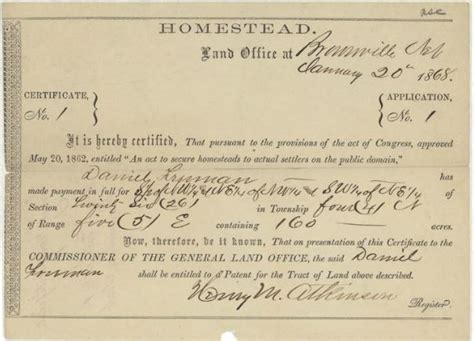 HOMESTEAD.
Land Office at Brownville Neb
January 20th 1868.
CERTIFICATE,
No. 1
APPLICATION,
No. 1
It is hereby certified, That pursuant to the provisions of the act of Congress, approved
May 20, 1862, entitled "An act to secure homesteads to actual settlers on the public domain,"
Daniel Freeman has
made payment in full for S½ of NW¼ NE¼ of NW¼ & SW¼ of NE¼ of
Section Twenty Six (26) in Township four (4) N
of Range five (5) E containing 160 acres.
Now, therefore, be it known, That on presentation of this Certificate to the
COMMISSIONER OF THE GENERAL LAND OFFICE, the said Daniel
Freeman shall be entitled to a Patent for the Tract of Land above described.
Henry M. Atkinson
Register.